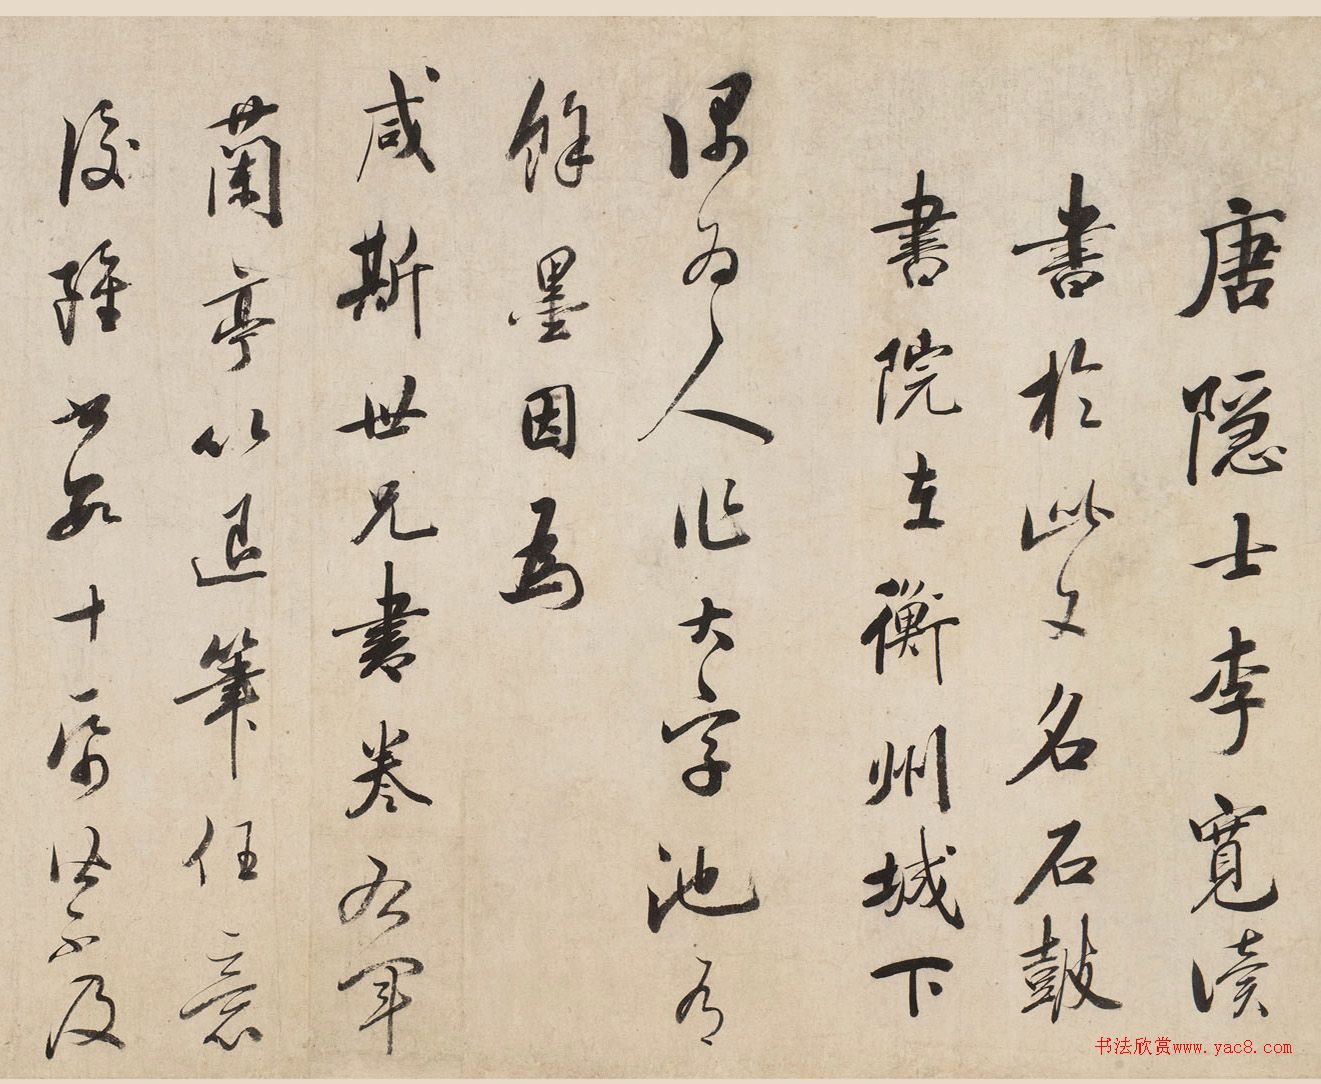 唐隐士李寬讀
書於此又名石鼓
書院在衡州城下
偶为人作大字池有
餘墨因爲
咸斯世兄書卷右軍
蘭亭以退筆任意
後雖書數十紙皆不及
书法欣赏www.yac8.com